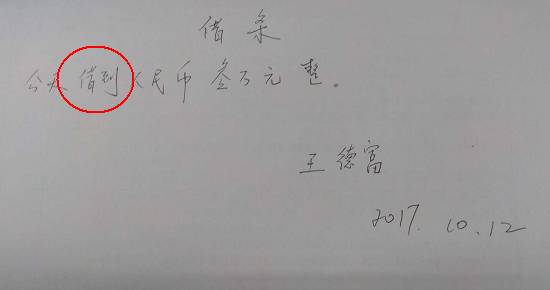 借条
今天借到人民币叁万元整。
王德富
2017.10.12